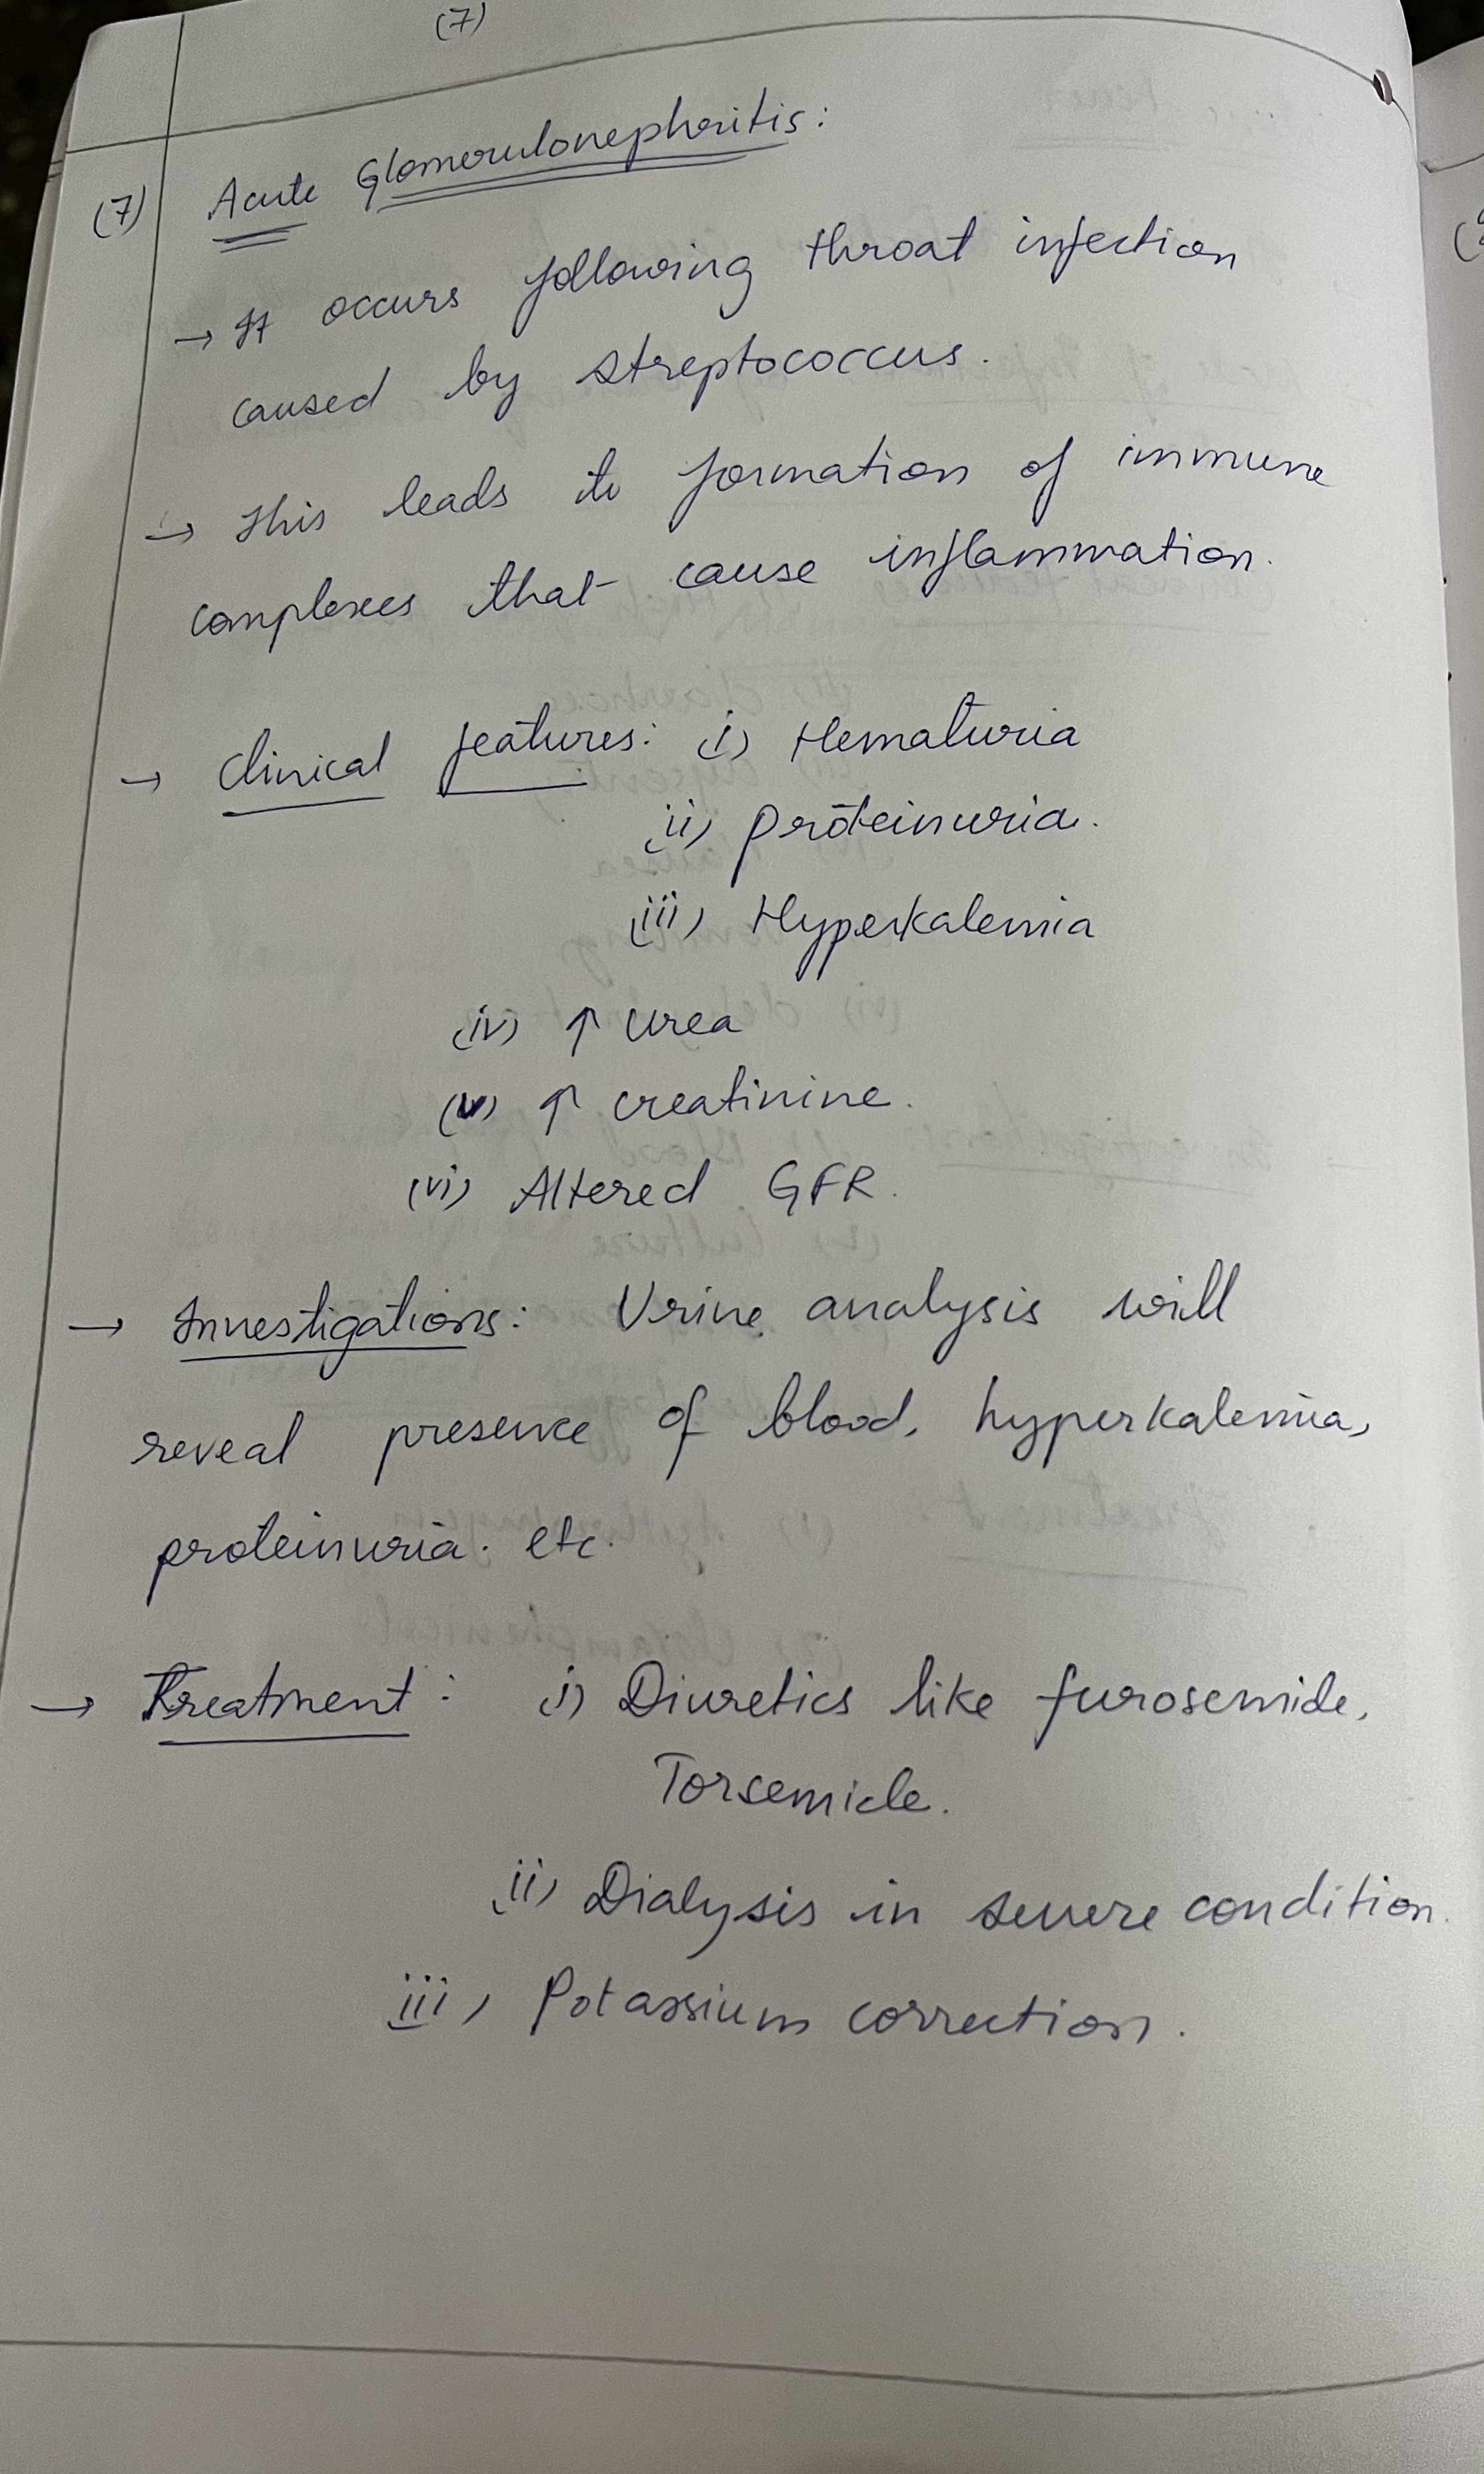 (7)
(7) Acute Glomerulonephritis:
→ It occurs following throat infection
caused by streptococcus.
→ This leads to formation of immune
complexes that cause inflammation.
→ Clinical features: i) Hematuria
ii) proteinuria.
iii) Hyperkalemia
(iv) ↑ Urea
(v) ↑ creatinine.
(vi) Altered GFR.
→ Investigations: Urine analysis will
reveal presence of blood, hyperkalemia,
proteinuria. etc.
→ Treatment: i) Diuretics like furosemide,
Torsemide.
ii) Dialysis in severe condition.
iii) Potassium correction.